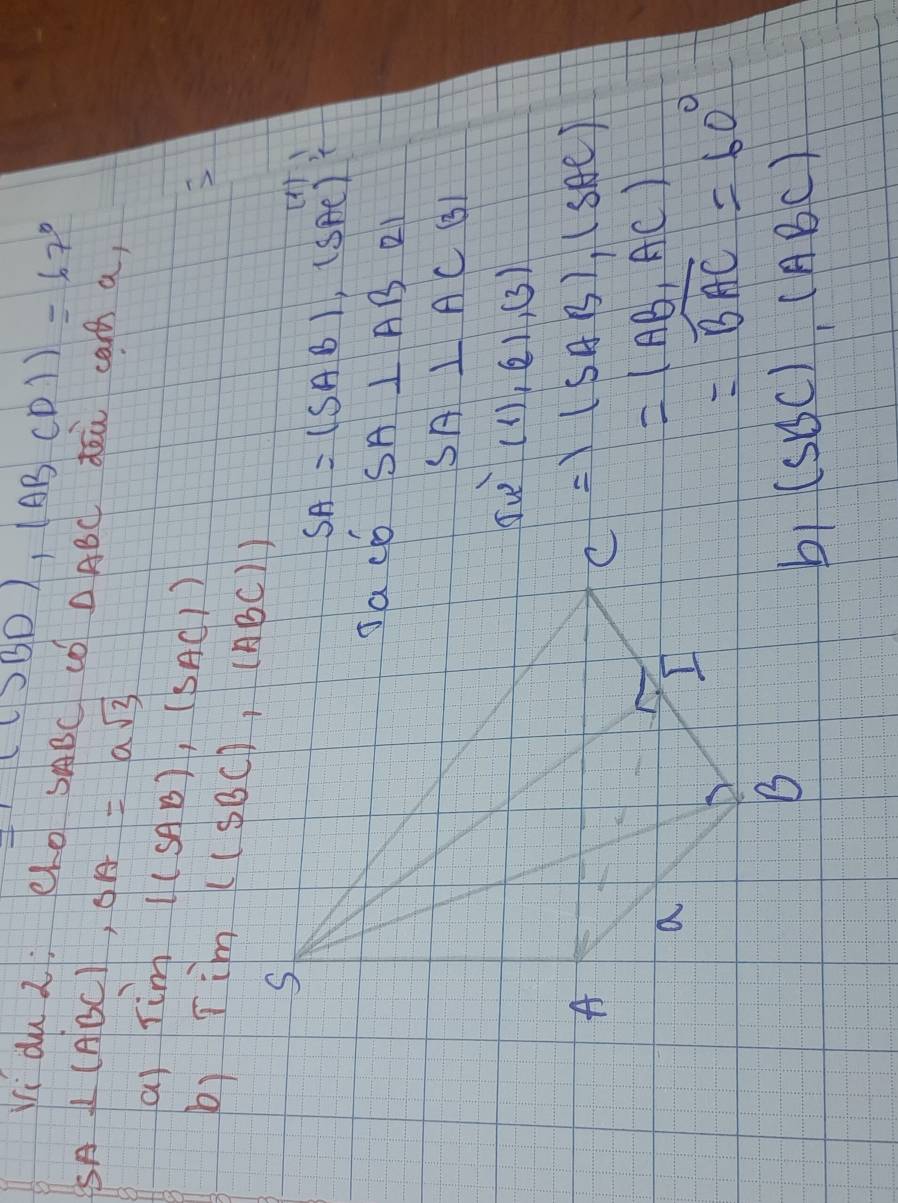 (SBD), (ABCD)) =
Ví dụ 2: Cho SABC có ΔABC đều cạnh a,
SA ⊥ (ABC), SA = a√3
a) Tìm ((SAB), (SAC))
b) Tìm ((SBC), (ABC))
SA = (SAB), (SAC) (1)
Ta có SA ⊥ AB (2)
SA ⊥ AC (3)
Từ (1), (2), (3)
=> (SAB), (SAC)
= (AB, AC)
= BAC = 60°
b) (SBC), (ABC)
S
A
a
B
I
C